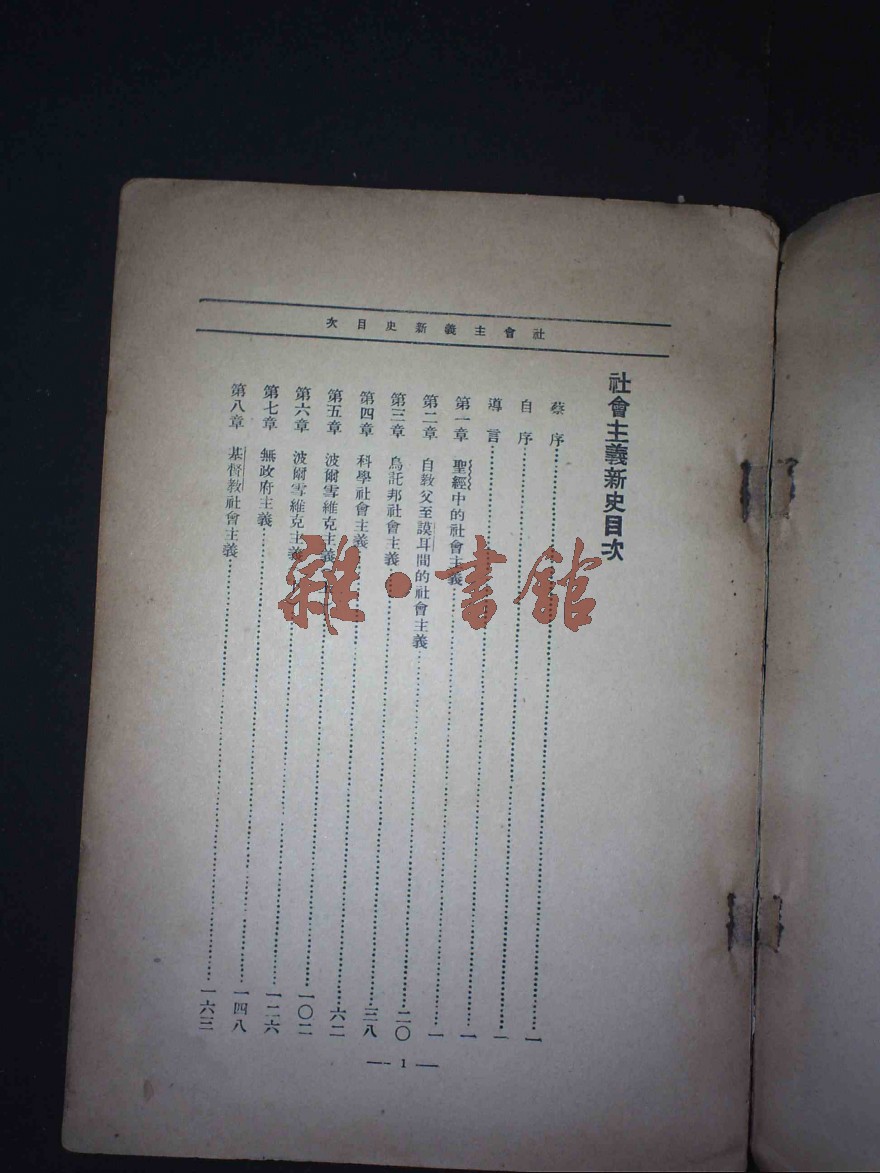 社會主義新史目次
社會主義新史目次
蔡序……一
自序……一
導言……一
第一章 聖經中的社會主義……一
第二章 自教父至謨耳間的社會主義……二〇
第三章 烏託邦社會主義……三八
第四章 科學社會主義……六二
第五章 波爾雪維克主義……一〇二
第六章 波爾雪維克主義……一二六
第七章 無政府主義……一四八
第八章 基督教社會主義……一六三
— 1 —
雜·書館